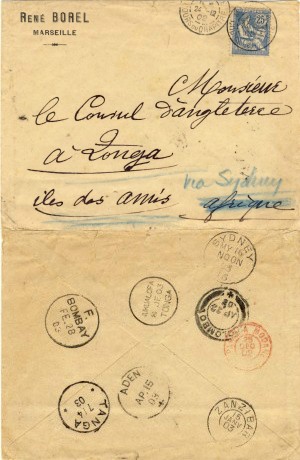 RENÉ BOREL
MARSEILLE
25
Monsieur
le Consul d'angleterre
à Tonga
via Sydney
îles des amis afrique
SYDNEY
MY 16
NOON
03
NUKUALOFA
TONGA
03
F.
BOMBAY
FE 28
03
COLOMBO
AP
03
ADEN
AP. 16
03
TANGA
7/4
03
ZANZIBAR
15
03